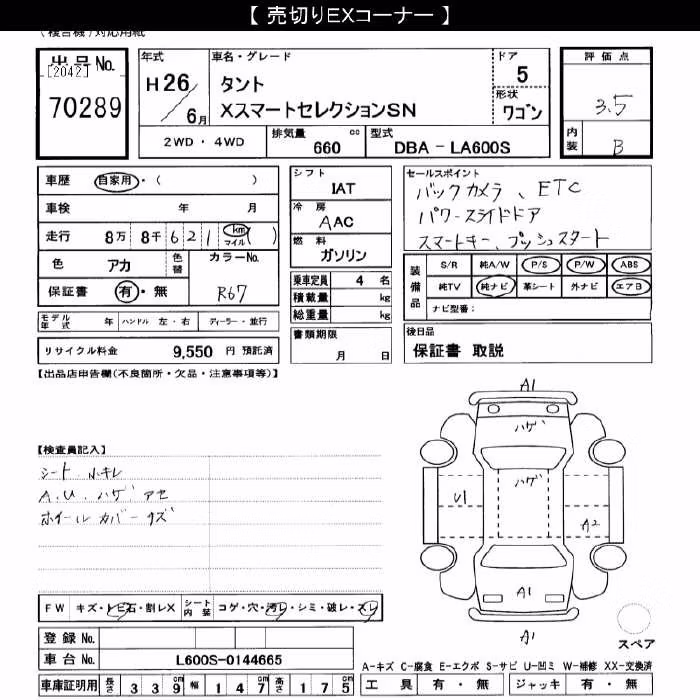 【 売切りEXコーナー 】
(複合機)対応用紙
出品No.
[2042]
70289
年式
H26／6月
車名・グレード
タント
XスマートセレクションSN
ドア
5
形状
ワゴン
評価点
3.5
内装
B
2WD ・ 4WD
排気量
660 cc
型式
DBA － LA600S
車歴 自家用・( )
車検 年 月
走行 8万 8千 6 2 1 km マイル ( )
色 アカ 色替
カラーNo.
R67
保証書 有・無
モデル年式 年 ハンドル 左・右 ディーラー・並行
リサイクル料金 9,550 円 預託済
シフト
IAT
冷房
AAC
燃料
ガソリン
乗車定員 4 名
積載量 kg
総重量 kg
書類期限
月 日
セールスポイント
バックカメラ、ETC
パワースライドドア
スマートキー、プッシュスタート
装備品
S/R 純A/W P/S P/W ABS
純TV 純ナビ 革シート 外ナビ エアB
ナビ型番：
後日品
保証書 取説
【出品店申告欄(不良箇所・欠品・注意事項等)】
【検査員記入】
シート ホキレ
A.U. ハゲ アセ
ホイールカバーキズ
A1
ハゲ
ハゲ
U1
A2
A1
A1
スペア
FW キズ・トビ石・割レX
シート内装 コゲ・穴・汚レ・シミ・破レ・スレ
登録No.
車台No. L600S-0144665
車庫証明用 長さ 3 3 9 cm 幅 1 4 7 cm 高さ 1 7 5 cm
A-キズ C-腐食 E-エクボ S-サビ U-凹ミ W-補修 XX-交換済
工具 有・無 ジャッキ 有・無